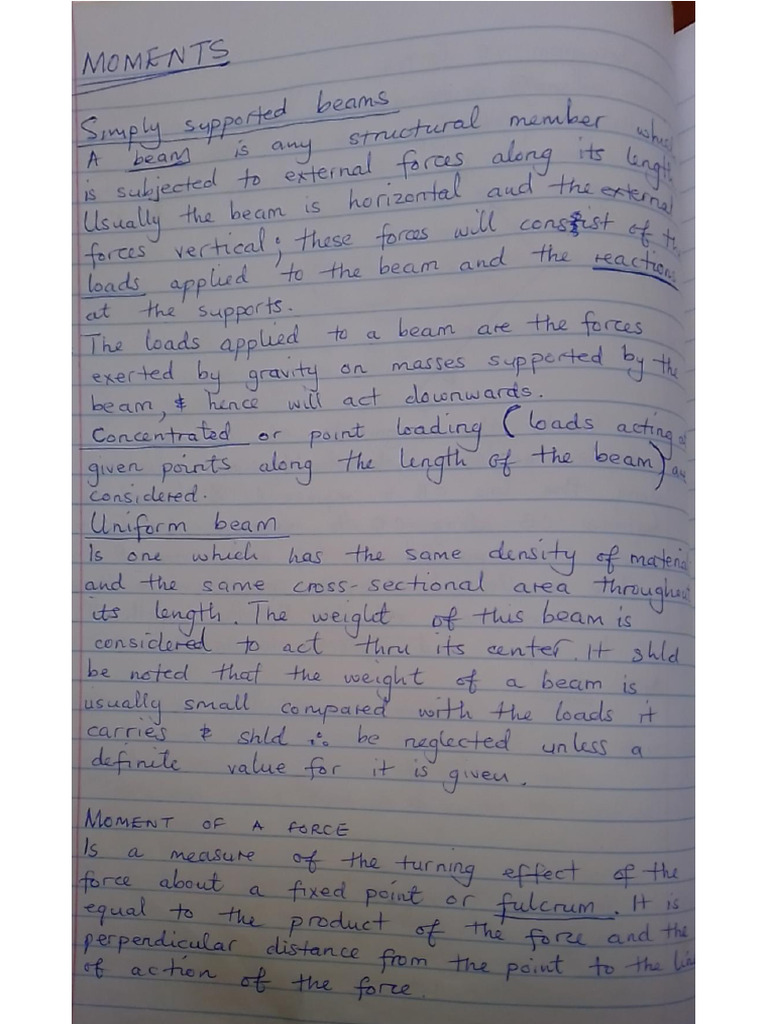 MOMENTS
Simply supported beams
A beam is any structural member
is subjected to external forces along its length
Usually the beam is horizontal and the external
forces vertical; these forces will consist of
loads applied to the beam and the reactions
at the supports.
The loads applied to a beam are the forces
exerted by gravity on masses supported by the
beam, & hence will act downwards.
Concentrated or point loading (loads acting
given points along the length of the beam)
considered.
Uniform beam
Is one which has the same density of material
and the same cross-sectional area throughout
its length. The weight of this beam is
considered to act thru its center. It shld
be noted that the weight of a beam is
usually small compared with the loads it
carries & shld ∴ be neglected unless a
definite value for it is given.
MOMENT OF A FORCE
Is a measure of the turning effect of the
force about a fixed point or fulcrum. It is
equal to the product of the force and the
perpendicular distance from the point to the line
of action of the force.